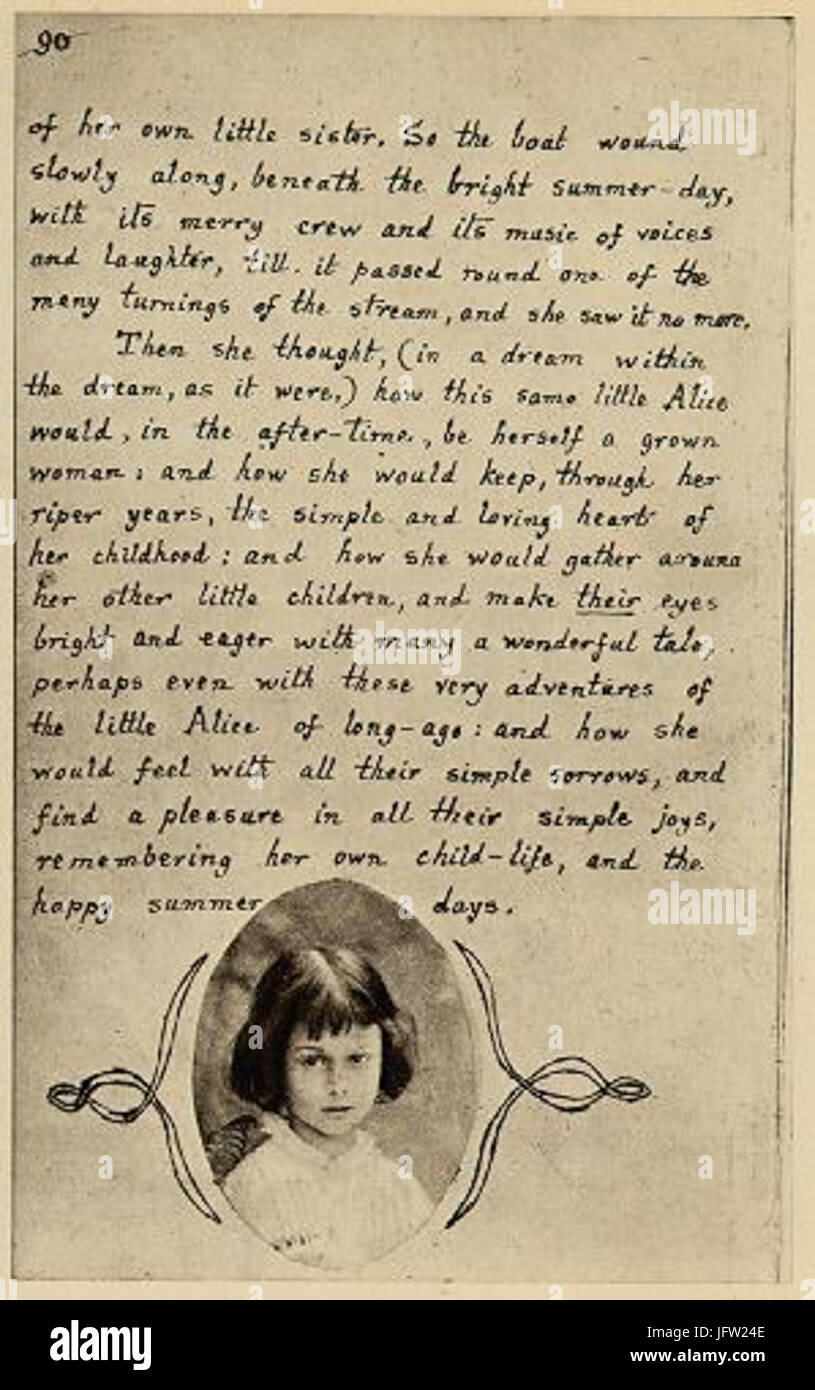 90
of her own little sister. So the boat wound
slowly along, beneath the bright summer-day,
with its merry crew and its music of voices
and laughter, till it passed round one of the
many turnings of the stream, and she saw it no more.
Then she thought, (in a dream within
the dream, as it were,) how this same little Alice
would, in the after-time, be herself a grown
woman: and how she would keep, through her
riper years, the simple and loving heart of
her childhood: and how she would gather around
her other little children, and make their eyes
bright and eager with many a wonderful tale,
perhaps even with these very adventures of
the little Alice of long-ago: and how she
would feel with all their simple sorrows, and
find a pleasure in all their simple joys,
remembering her own child-life, and the
happy summer days.
alamy
alamy
alamy
alamy
alamy
alamy stock photo
JFW24E
www.alamy.com